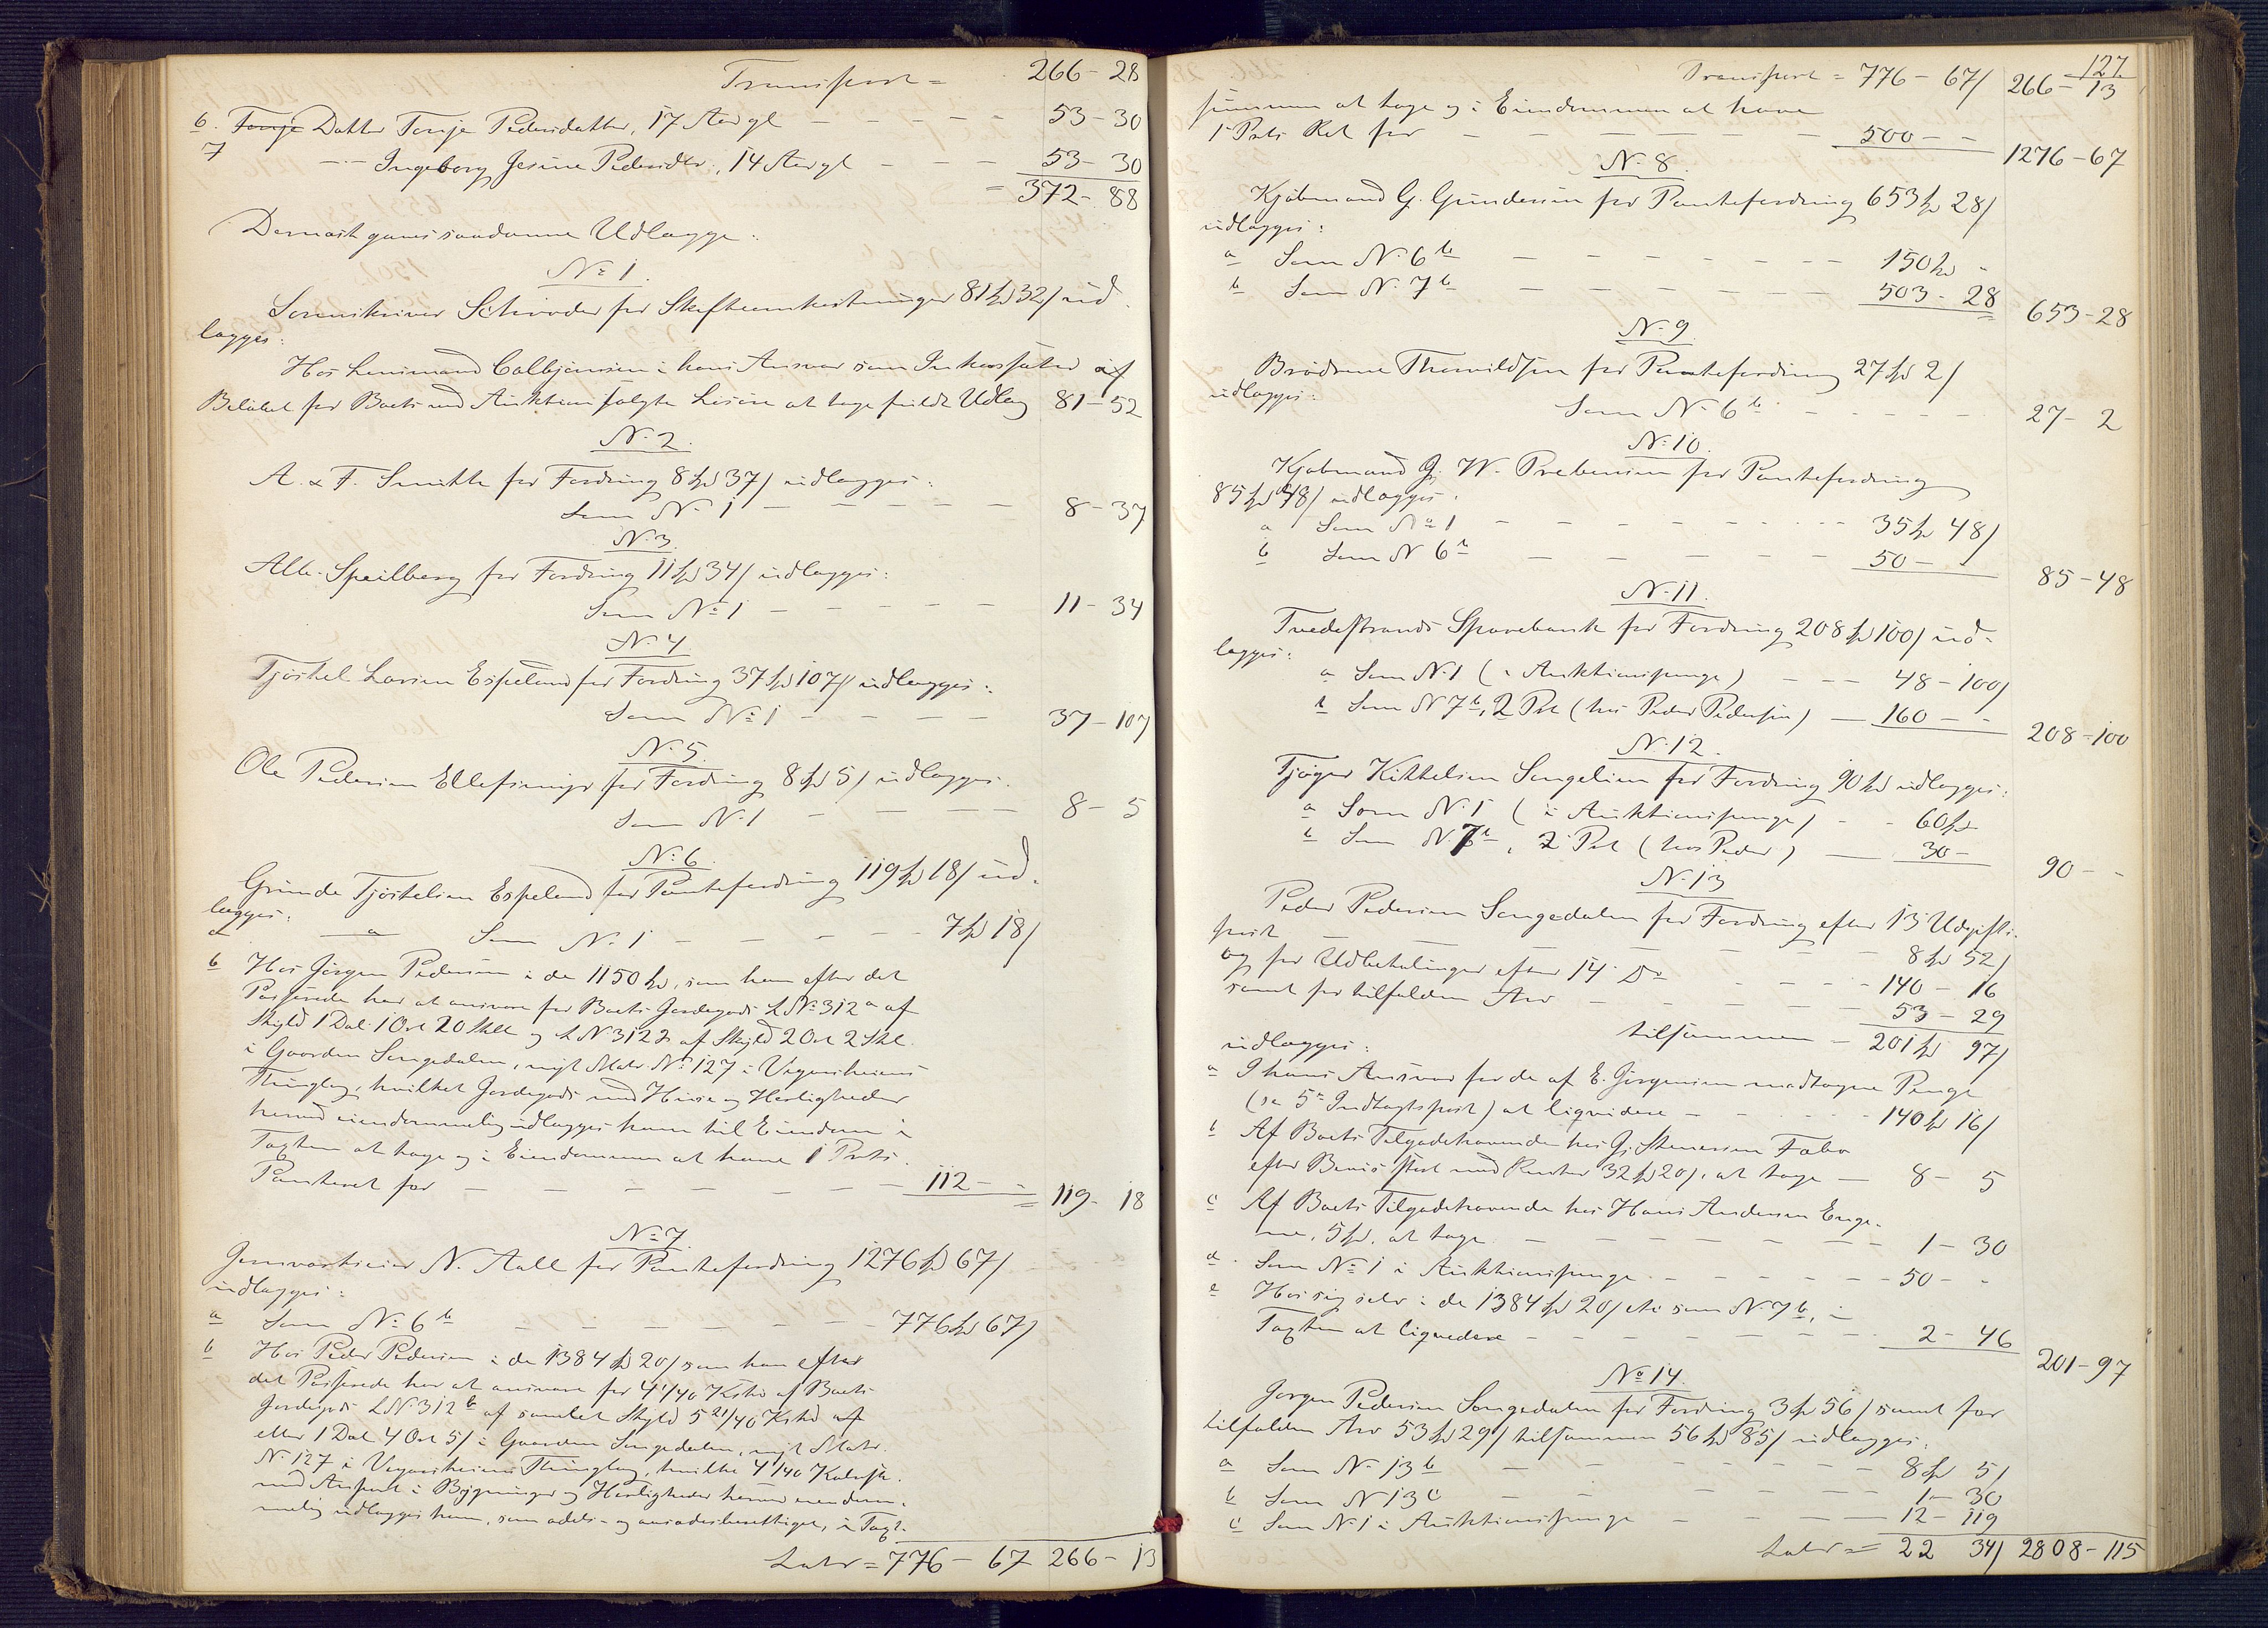 Transport = 266 - 28
6. Tonje Datter Tonje Pedersdatter, 17 Aar gl - - - - 53 - 30
7 - - Ingeborg Jesine Pedersdtr, 14 Aar gl - - - 53 - 30
= 372 - 88
Dernæst gjøres saadanne Udlægge:
No 1.
Sorenskriver Schrøder for Skifteomkostninger 81 Spd 52 / ud-
lægges:
Hos Lensmand Colbjørnsen i hans Ansvar som Inkassator af
Beløbet for Boets ved Auktion solgte Løsøre at tage fuldt Udlæg 81 - 52
No 2.
A. & F. Smith for Fordring 8 Spd 37 / udlægges:
Som No 1 - - - - - 8 - 37
No 3.
Alb. Speilberg for Fordring 11 Spd 34 / udlægges:
Som No 1 - - - - - 11 - 34
No 4
Tjøstel Larsen Espeland for Fordring 37 Spd 107 / udlægges:
Som No 1 - - - - 37 - 107
No 5.
Ole Pedersen for Fordring 8 Spd 5 / udlægges.
Som No 1 - - - - 8 - 5
No 6.
Gunde Tjøstelsen Espeland for Pantefordring 119 Spd 18 / ud-
lægges:
a Som No 1 - - - - - 7 Spd 18 /
b Hos Jørgen Pedersen i de 1150 Spd, som han efter det
Passerede har at ansvare for Boets Jordegods LNo 312 a af
Skyld 1 Dal. 1 Ort 20 Skl og LNo 312 af Skyld 2 Ort 2 Skl.
i Gaarden Songedalen, nyt Matr. No 127 i Vegarsheiens
Thinglag, hvilket Jordegods med Huse og Herligheder
herved eiendommelig udlægges ham til Eiendom i
Tagten at tage og i Eiendommen at have 1 Prts.
Panteret for - - - - - - 112 - - 119 - 18
No 7
Jernværkseier N. Aall for Pantefordring 1276 Spd 67 /
udlægges:
a Som No 6 b - - - - - - 776 Spd 67 /
b Hos Peder Pedersen i de 1384 Spd 20 / som han efter
det Passerede har at ansvare for 4 1/40 af Boets
Jordegods LNo 312 b af samlet Skyld 5 21/40
eller 1 Dal. 4 Ort 5 / i Gaarden Songedalen, nyt Matr.
No 127 i Vegarsheiens Thinglag, hvilke 4 1/40
med Anpart i Bygninger og Herligheder herved eiendom-
melig udlægges ham, som odels- og aasædesberettiget, i Tagt-
Latr = 776 - 67 266 - 13
127
Transport = 776 - 67 / 266 - 13
summen at tage og i Eiendommen at have
1 Prts Ret for - - - - - - 500 - - 1276 - 67
No 8
Kjøbmand G. Gundersen for Pantefordring 653 Spd 28 /
udlægges:
a Som No 6 b - - - - - - - 150 Spd -
b Som No 7 b - - - - - - 503 - 28 653 - 28
No 9.
Brødrene Thorvildsen for Pantefordring 27 Spd 2 /
udlægges:
Som No 6 b - - - - - 27 - 2
No 10.
Kjøbmand G. W. Prebensen for Pantefordring
85 Spd 48 / udlægges:
a Som No 1 - - - - - - - - 35 Spd 48 /
b Som No 6 b - - - - - - 50 - 85 - 48
No 11.
Tvedestrands Sparebank for Fordring 208 Spd 100 / ud-
lægges:
a Som No 1 (i Auktionspenge) - - - 48 - 100 /
b Som No 7 b, 2 Prt (hos Peder Pedersen) - 160 - - 208 - 100
No 12.
Tjøger Kittelsen Songelien for Fordring 90 Spd udlægges:
a Som No 1 (i Auktionspenge) - - 60 Spd
b Som No 7 b, 2 Prt (hos Peder) - 30 - 90 - -
No 13
Peder Pedersen Songedalen for Fordring efter 13 Udgifts-
post - - - - - - - 8 Spd 52 /
og for Udbetalinger efter 14 Do - - - - 140 - 16
samt for tilfalden Arv - - - - - 53 - 29
tilsammen - 201 Spd 97 /
udlægges:
a I hans Ansvar for de af E. Jørgensen modtagne Penge
(se 5te Indtægtspost) at liqvidere - - - - 140 Spd 16 /
b Af Boets Tilgodehavende hos G. Stenersen
efter Bevis stort med Renter 32 Spd 20 /, at tage - 8 - 5
c Af Boets Tilgodehavende hos Hans Andersen Enge-
ne, 5 Spd, at tage - - - - - - - 1 - 30
d. Som No 1 i Auktionspenge - - - - - 50 - -
e Hos sig selv i de 1384 Spd 20 / etc som No 7 b, i
Tagten at liqvidere - - - - - - 2 - 46 201 - 97
No 14.
Jørgen Pedersen Songedalen for Fordring 3 Spd 56 / samt for
tilfalden Arv 53 Spd 29 / tilsammen 56 Spd 85 / udlægges:
a Som No 13 b - - - - - - 8 Spd 5 /
b Som No 13 c - - - - - 1 - 30
c Som No 1 i Auktionspenge - - - - 12 - 119
Latr = 22 34 / 2808 - 115